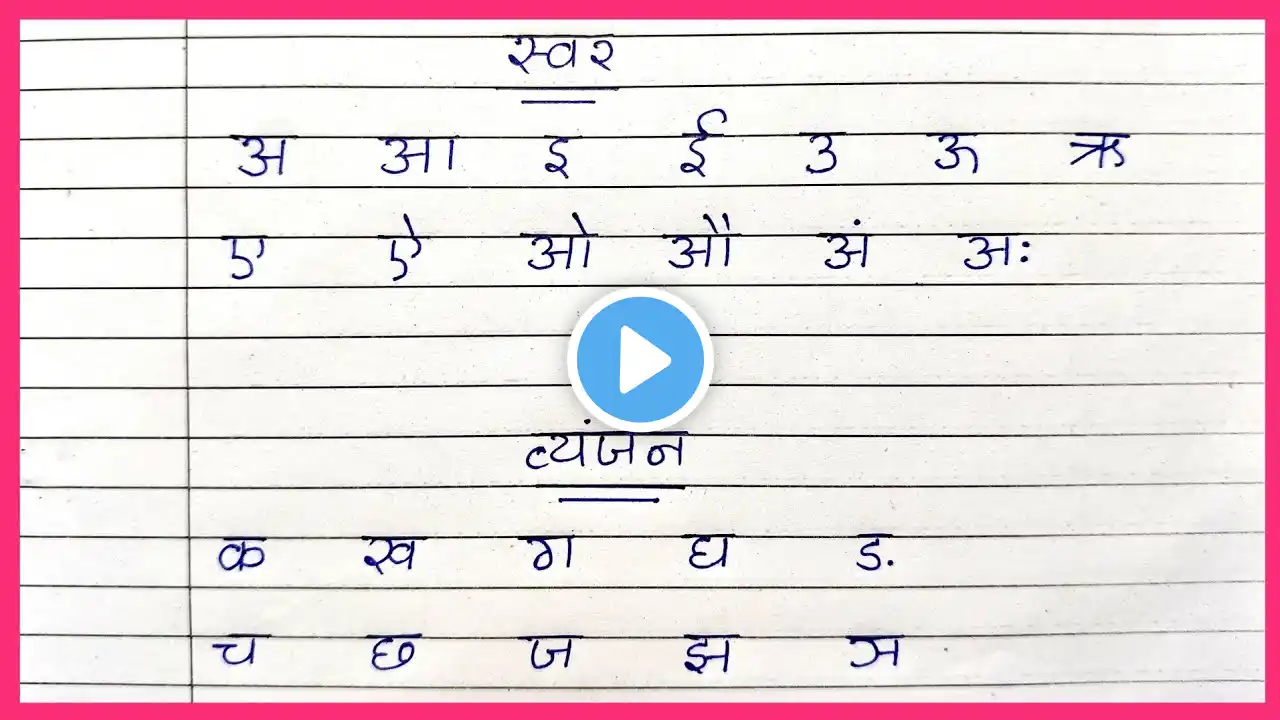 स्वर
अ आ इ ई उ ऊ ऋ
ए ऐ ओ औ अं अः
व्यंजन
क ख ग घ ङ
च छ ज झ ञ